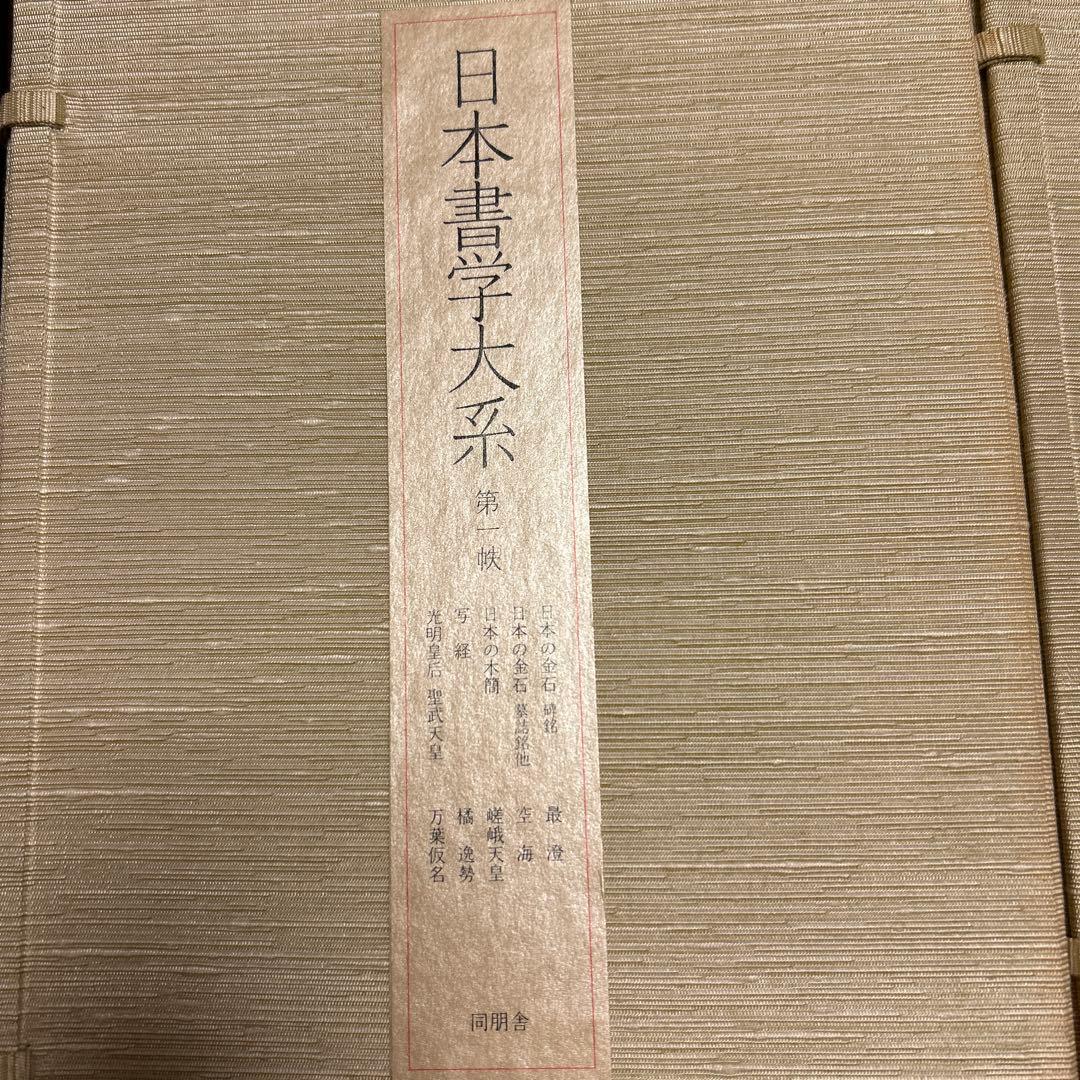 日本書学大系
第一帙
日本の金石 碑銘
日本の金石 墓誌銘他
日本の木簡
写経
光明皇后 聖武天皇
最澄
空海
嵯峨天皇
橘逸勢
万葉仮名
同朋舎